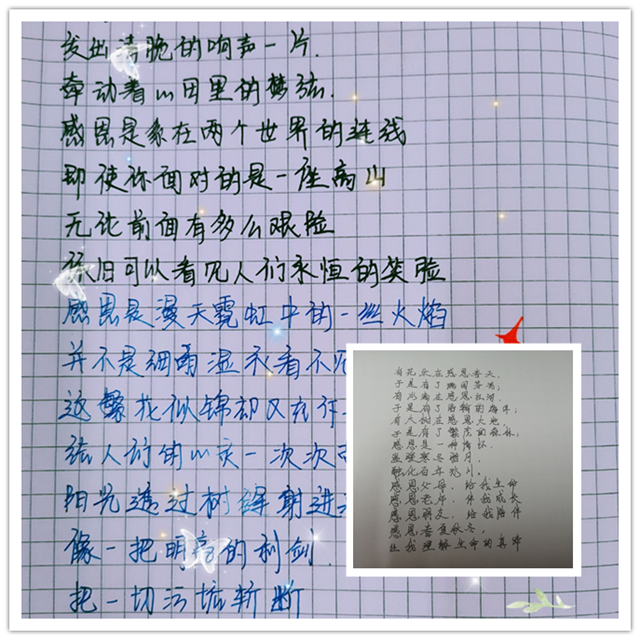 发出清脆的响声一片.
牵动着心田里的梦弦.
感恩是系在两个世界的连线
即使你面对的是一座高山
无论前面有多么艰险
依旧可以看见人们永恒的笑脸
感恩是漫天霓虹中的一丝火焰
并不是细雨湿衣看不见
这繁花似锦却又有许
让人们的心灵一次次
阳光透过树缝射进
像一把明亮的利剑.
把一切污垢斩断
有花朵在感恩春天,
于是有了满园芬芳;
有水滴在感恩江河,
于是有了浩瀚的海洋;
有大树在感恩大地,
于是有了繁茂的森林;
感恩是一种情怀.
温暖寒冬腊月.
融化百年冰川.
感恩父母,给我生命
感恩老师,伴我成长
感恩朋友,给我陪伴
感恩春夏秋冬,
让我理解生命的真谛